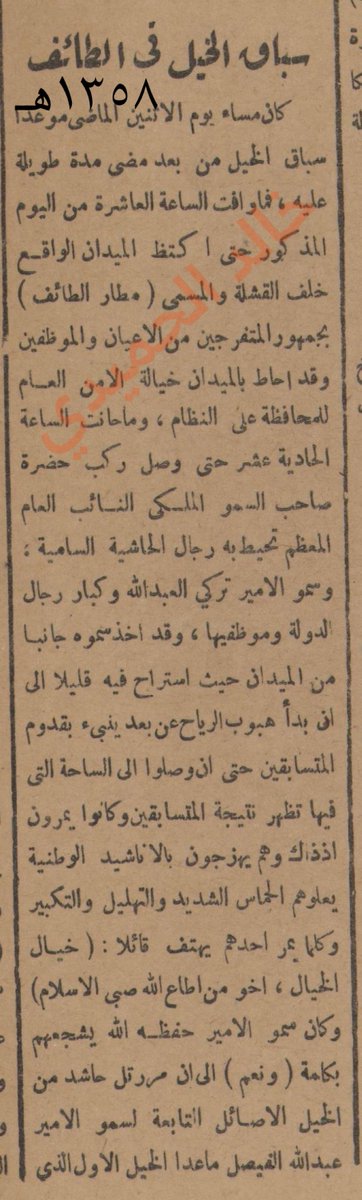 سباق الخيل في الطائف
١٣٥٨هـ
كان مساء يوم الاثنين الماضى موعدا
سباق الخيل من بعد مضى مدة طويلة
عليه ، فما وافت الساعة العاشرة من اليوم
المذكور حتى اكتظ الميدان الواقع
خلف القشلة والمسمى ( مطار الطائف )
بجمهور المتفرجين من الاعيان والموظفين
وقد احاط بالميدان خيالة الامن العام
للمحافظة على النظام ، وما حانت الساعة
الحادية عشر حتى وصل ركب حضرة
صاحب السمو الملكى النائب العام
المعظم تحيط به رجال الحاشية السامية ،
وسمو الامير تركي العبدالله وكبار رجال
الدولة وموظفيها ، وقد اخذ سموه جانبا
من الميدان حيث استراح فيه قليلا الى
ان بدأ هبوب الرياح عن بعد ينبىء بقدوم
المتسابقين حتى ان وصلوا الى الساحة التى
فيها تظهر نتيجة المتسابقين وكانوا يمرون
اذذاك وهم يهزجون بالاناشيد الوطنية
يعلوهم الحماس الشديد والتهليل والتكبير
وكلما يمر احدهم يهتف قائلا : ( خيال
الخيال ، اخو من اطاع الله صبي الاسلام )
وكان سمو الامير حفظه الله يشجعهم
بكلمة ( ونعم ) الى ان مر رتل حاشد من
الخيل الاصائل التابعة لسمو الامير
عبدالله الفيصل ماعدا الخيل الاول الذي
خالد الحميدي